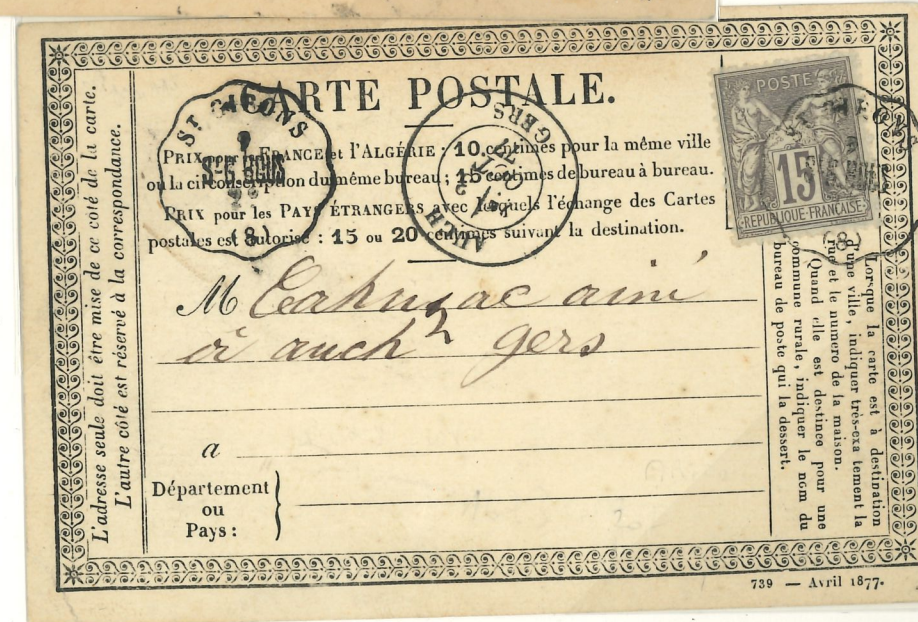 CARTE POSTALE.
PRIX pour la FRANCE et l'ALGÉRIE : 10 centimes pour la même ville
ou la circonscription du même bureau ; 15 centimes de bureau à bureau.
PRIX pour les PAYS ÉTRANGERS avec lesquels l'échange des Cartes
postales est autorisé : 15 ou 20 centimes suivant la destination.
M Cahuzac ainé
à auch gers
a
Département
ou
Pays :
L'adresse seule doit être mise de ce côté de la carte.
L'autre côté est réservé à la correspondance.
Lorsque la carte est à destination
d'une ville, indiquer très-exa tement la
rue et le numéro de la maison.
Quand elle est destinée pour une
commune rurale, indiquer le nom du
bureau de poste qui la dessert.
739 — Avril 1877.
POSTE
15
REPUBLIQUE-FRANÇAISE
ST GIRONS
(8)
AUCH
GERS
(8)